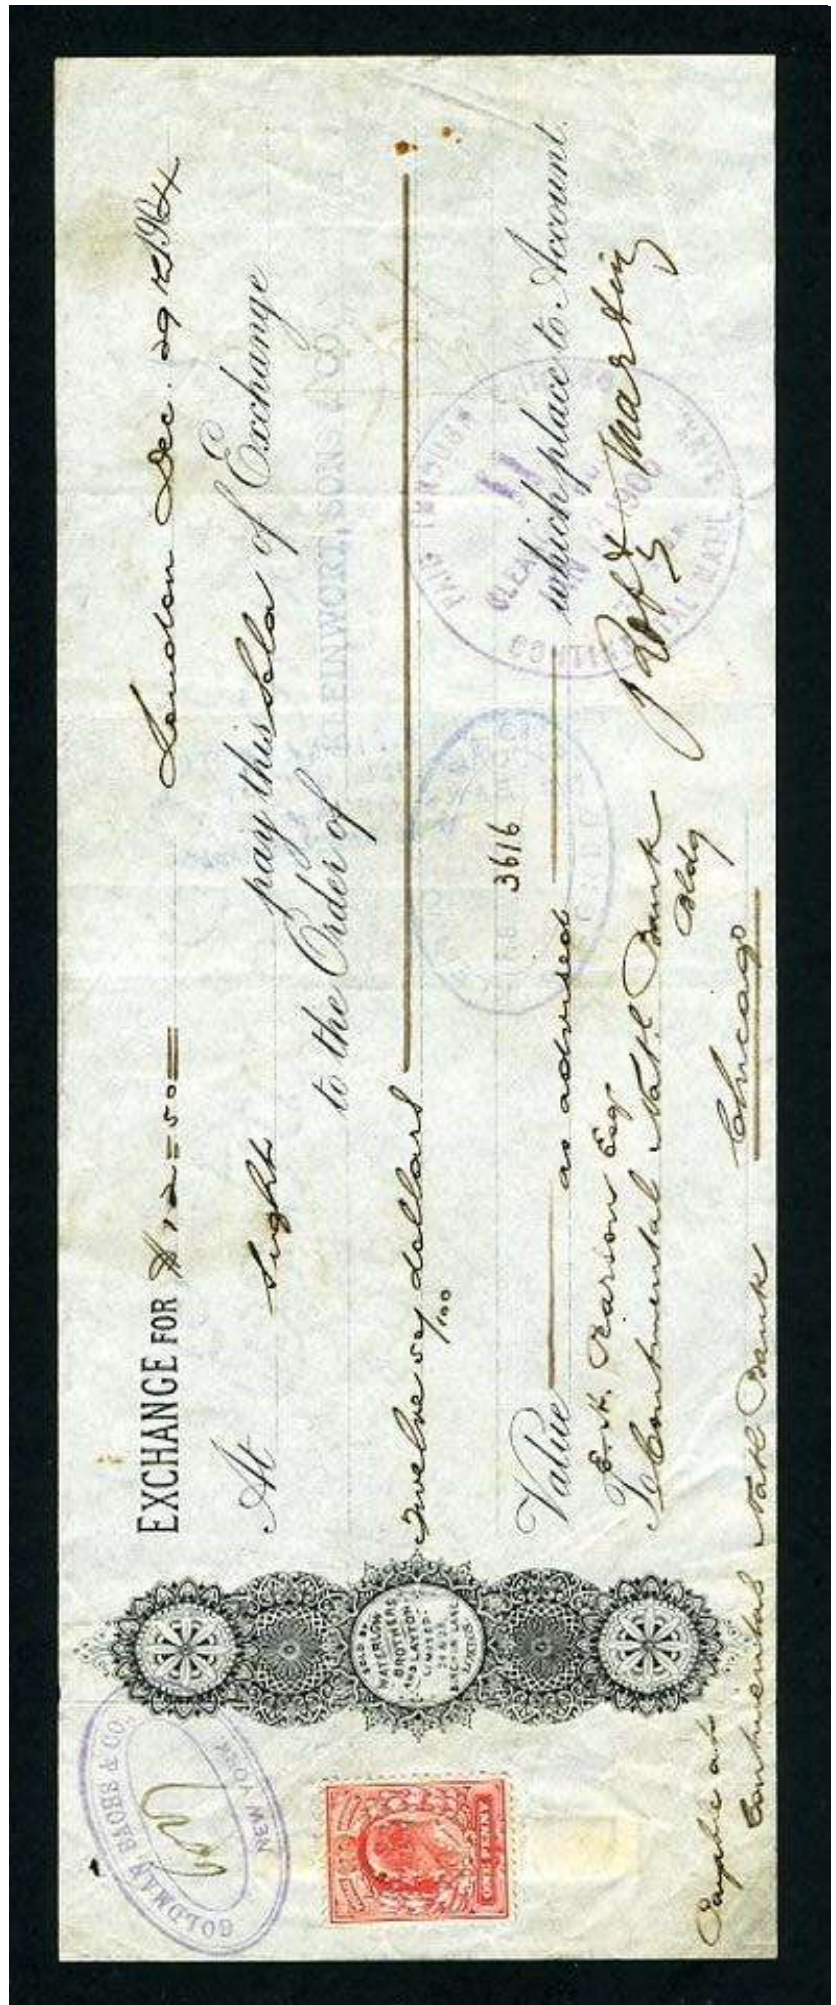 EXCHANGE FOR $12=50 London Dec. 29 1904
At Sight pay this Sola of Exchange
to the Order of KLEINWORT, SONS & CO
Twelve 50/100 dollars
3616
Value as advised which place to Account.
To Pearson Esq
Continental Nat'l Bank
Bldg
Chicago
Martin
Payable at
Continental Natl Bank
GOLDMAN SACHS & CO.
NEW YORK
SOLD BY
WATERLOW
BROTHERS
& LAYTON
LIMITED
BIRCHIN LANE
LONDON
ONE PENNY
PAID THROUGH
CHICAGO
CLEARING
NATL BANK